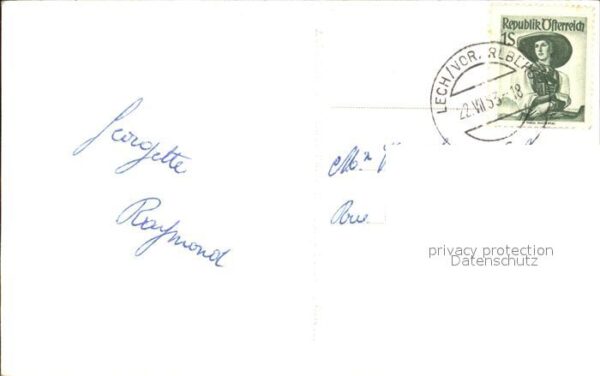 Republik Österreich
1S
LECH/VORARLBERG
22.VII.53-18
Georgette
Raymond
Mon
Rue
privacy protection
Datenschutz